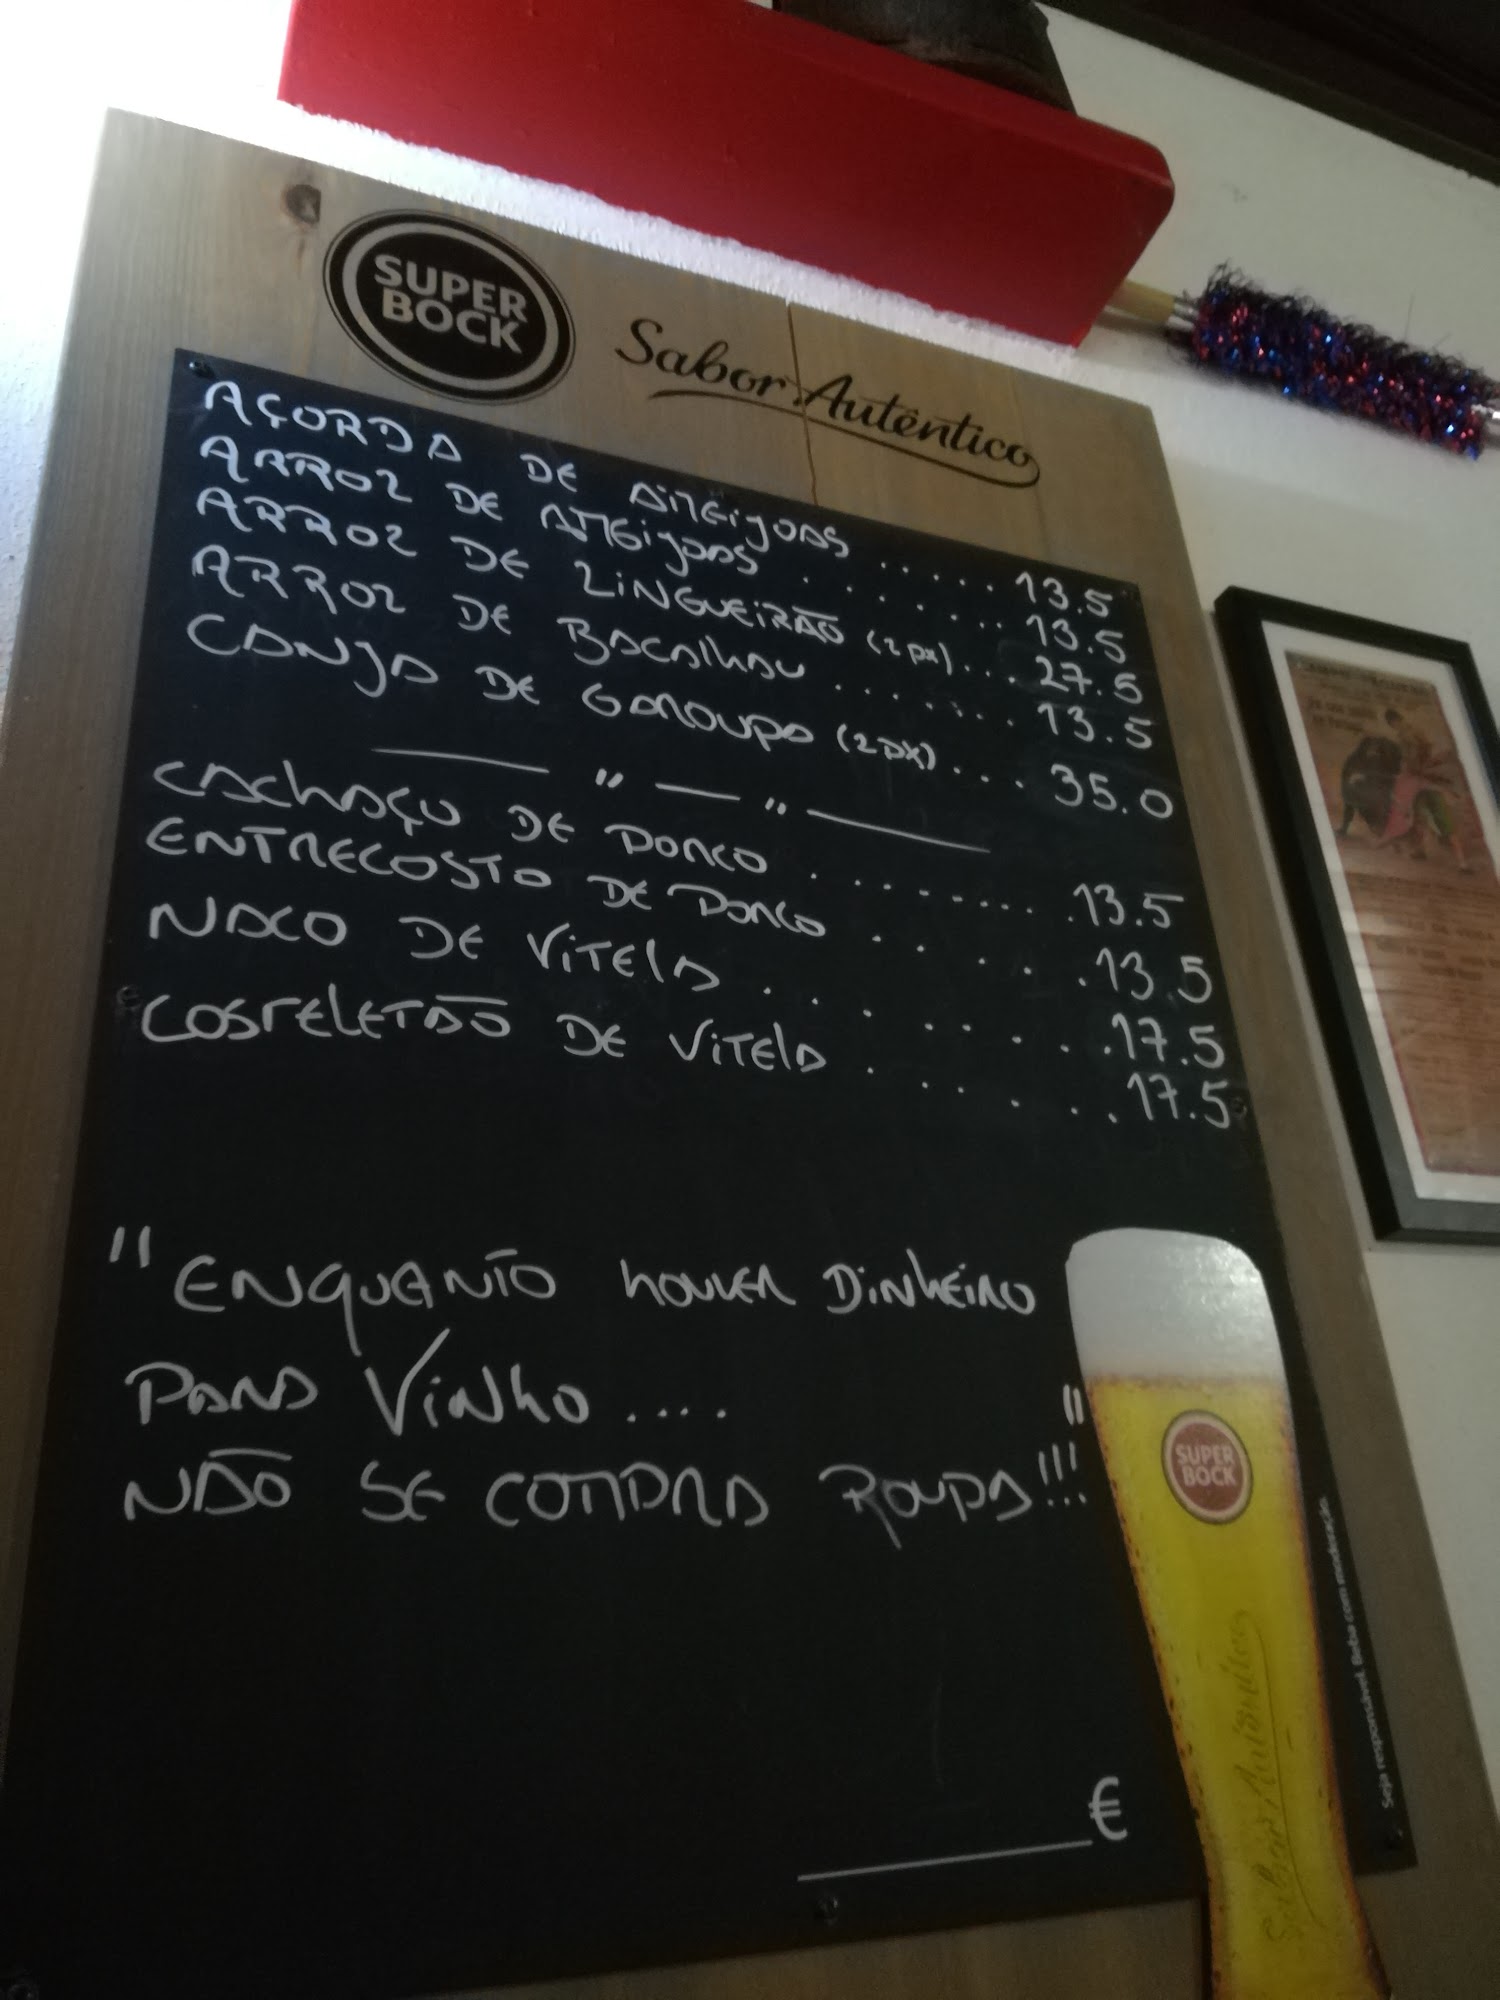 SUPER
BOCK
Sabor Autêntico
AÇORDA DE AMEIJOAS ..... 13.5
ARROZ DE AMEIJOAS ....... 13.5
ARROZ DE LINGUEIRÃO (2px)... 27.5
ARROZ DE BACALHAU ....... 13.5
CANJA DE GAROUPA (2px)... 35.0
— " — " —
CACHAÇO DE PORCO ......... 13.5
ENTRECOSTO DE PORCO ..... 13.5
NACO DE VITELA ........ 17.5
COSTELETÃO DE VITELA ...... 17.5
"ENQUANTO HOUVER DINHEIRO
PARA VINHO .... "
NÃO SE COMPRA ROUPA!!!
SUPER
BOCK
Sabor Autêntico
Seja responsável. Beba com moderação.
______€